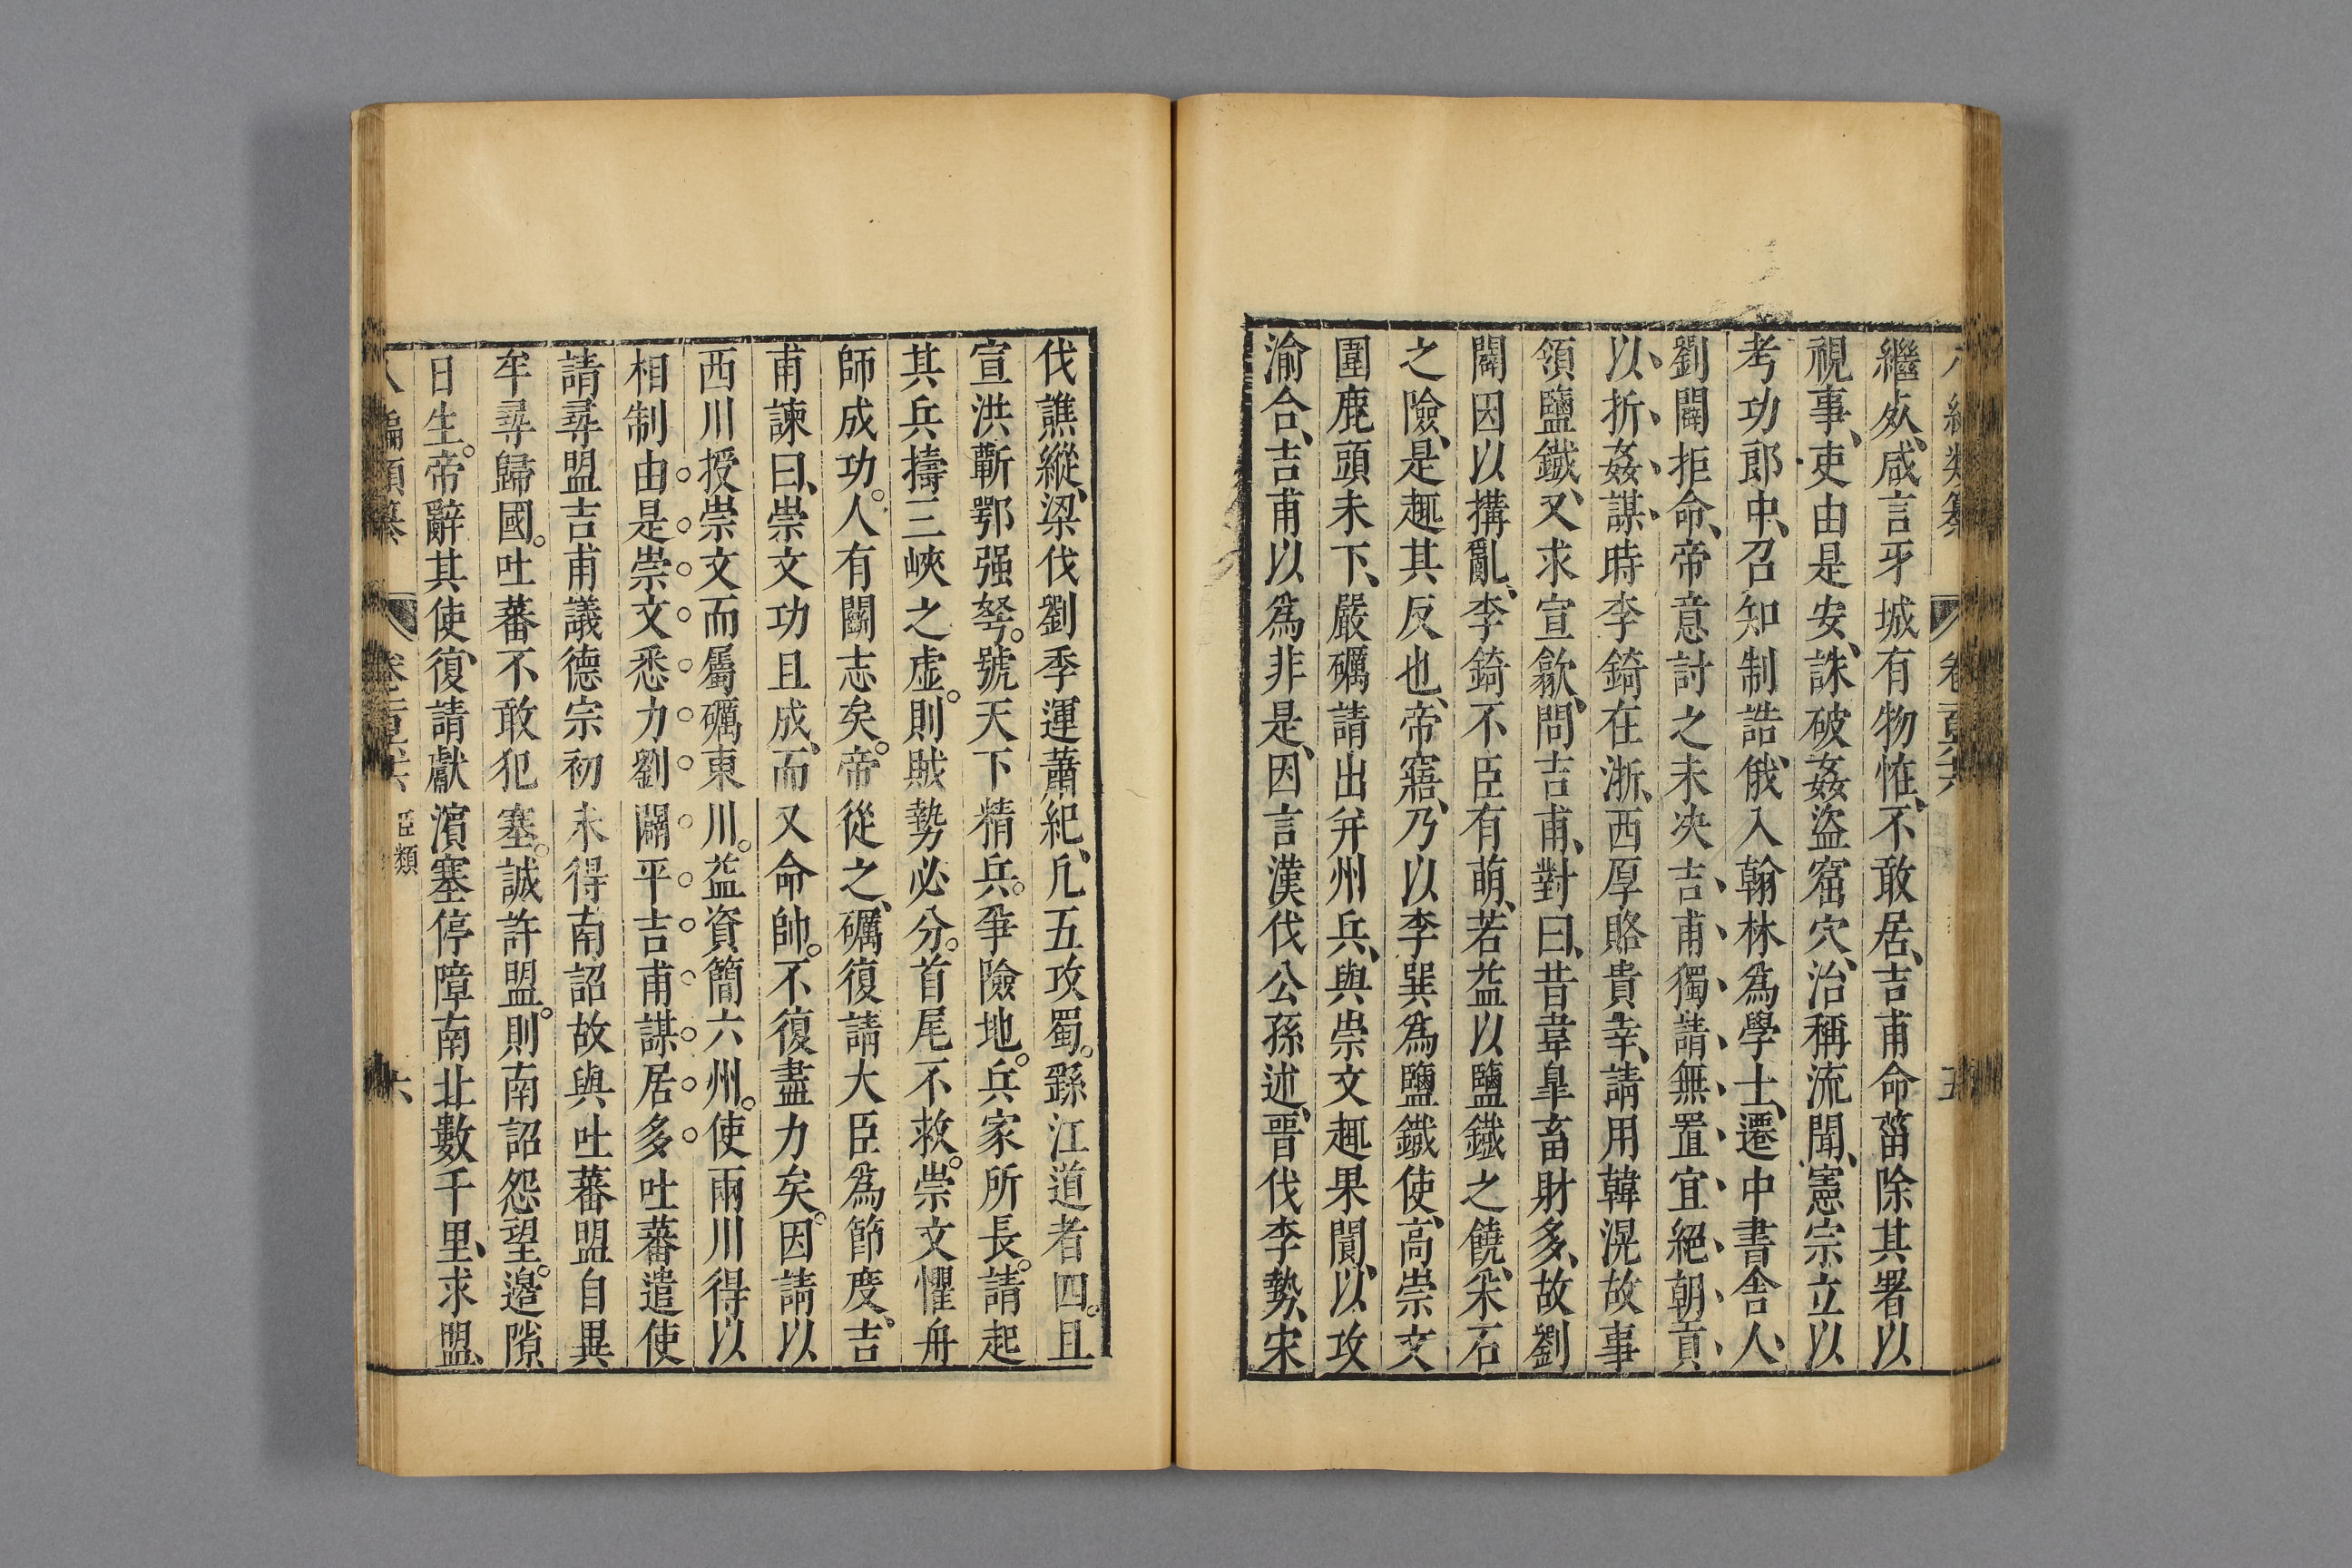 繼歿、咸言牙城有物怪、不敢居、吉甫命菑除其署以
視事、吏由是安、誅破姦盜窟穴、治稱流聞、憲宗立以
考功郎中、召知制誥、俄入翰林爲學士、遷中書舍人、
劉闢拒命、帝意討之未決吉甫獨請無置宜絕朝貢
以折姦謀時李錡在浙、西厚賂貴幸、請用韓滉故事
領鹽鐵、又求宣歙、問吉甫、對曰、昔韋皐畜財多、故劉
闢因以搆亂、李錡不臣有萌、若益以鹽鐵之饒、采石
之險、是趣其反也、帝寤、乃以李巽爲鹽鐵使、高崇文
圍鹿頭未下、嚴礪請出并州兵、與崇文趣果閬、以攻
渝合、吉甫以爲非是、因言漢伐公孫述、晉伐李勢、宋
伐譙縱、梁伐劉季連蕭紀、凡五攻蜀。繇江道者四。且
宣洪蘄鄂强弩。號天下精兵。爭險地。兵家所長。請起
其兵擣三峽之虛。則賊勢必分。首尾不救。崇文懼舟
師成功。人有鬭志矣。帝從之、礪復請大臣爲節度、吉
甫諫曰、崇文功且成、而又命帥。不復盡力矣。因請以
西川授崇文而屬礪東川。益資簡六州。使兩川得以
相制由是崇文悉力劉闢平吉甫謀居多吐蕃遣使
請尋盟吉甫議德宗初未得南詔故與吐蕃盟自異
牟尋歸國。吐蕃不敢犯塞。誠許盟。則南詔怨望。邊隙
日生。帝辭其使、復請獻濵塞停障南北數千里、求盟、
編類纂 臣類 六